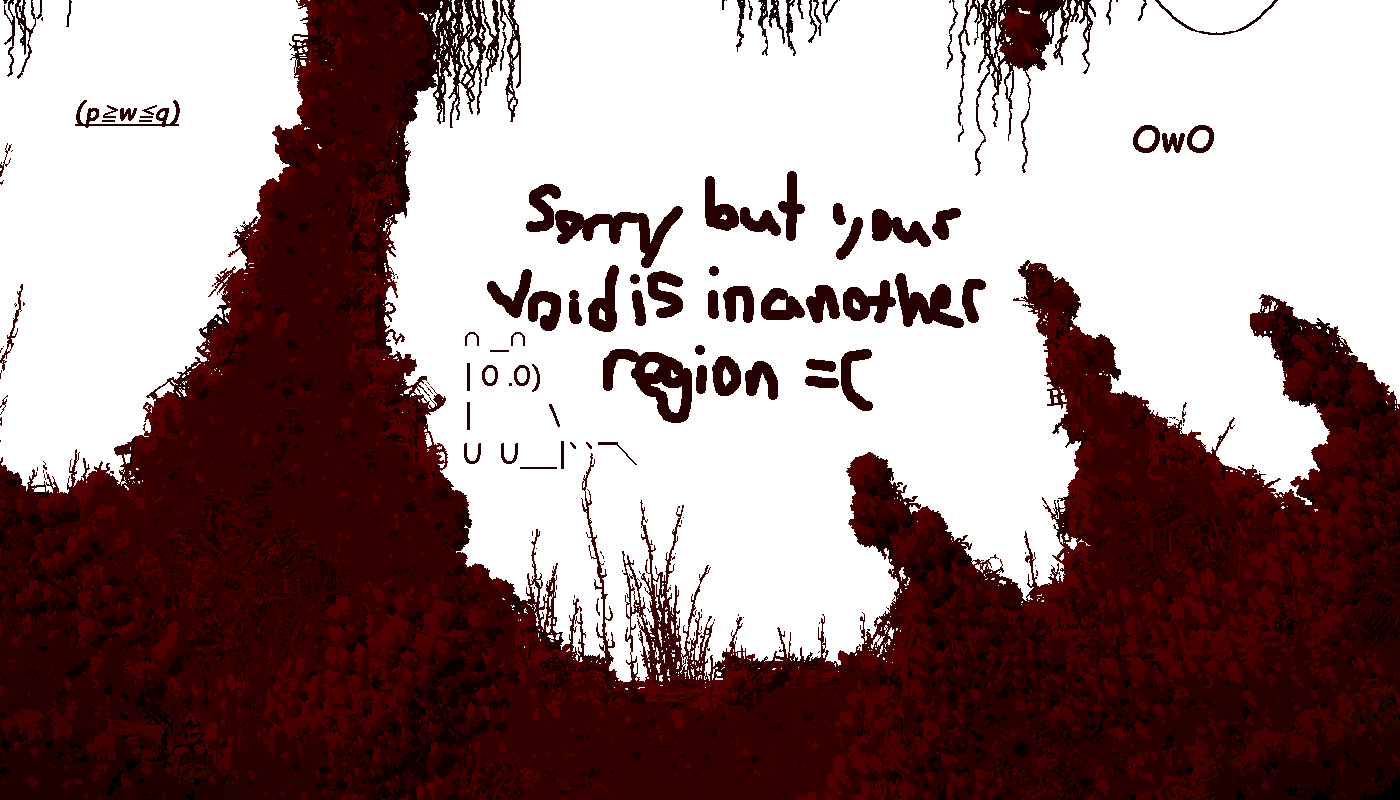 (p≧w≦q)
OwO
Sorry but your
void is in another
region =(
∩ _∩
| 0 .0)
|        \
U  U__|`ˋ¯＼